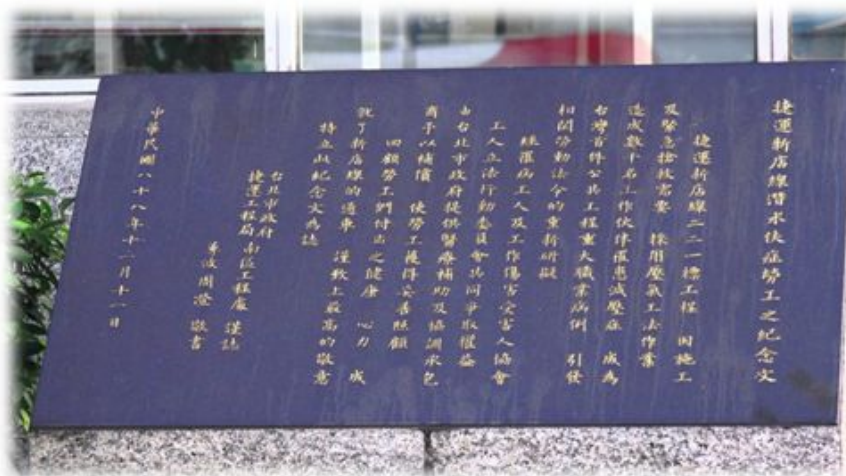 捷運新店線潛水伕症勞工之紀念文
捷運新店線二二一標工程 因施工
及緊急搶救需要 採用壓氣工法作業
造成數十名工作伙伴罹患減壓症 成為
台灣首件公共工程重大職業病例 引發
相關勞動法令的重新研擬
經罹病工人及工作傷害受害人協會
工人立法行動委員會共同爭取權益
由台北市政府提供醫療補助及協調承包
商予以補償 使勞工獲得妥善照顧
回顧勞工們付出之健康 心力 成
就了新店線的通車 謹致上最高的敬意
特立此紀念文為誌
台北市政府
捷運工程局 南區工程處 謹誌
周澄 敬書
中華民國八十八年十二月十一日